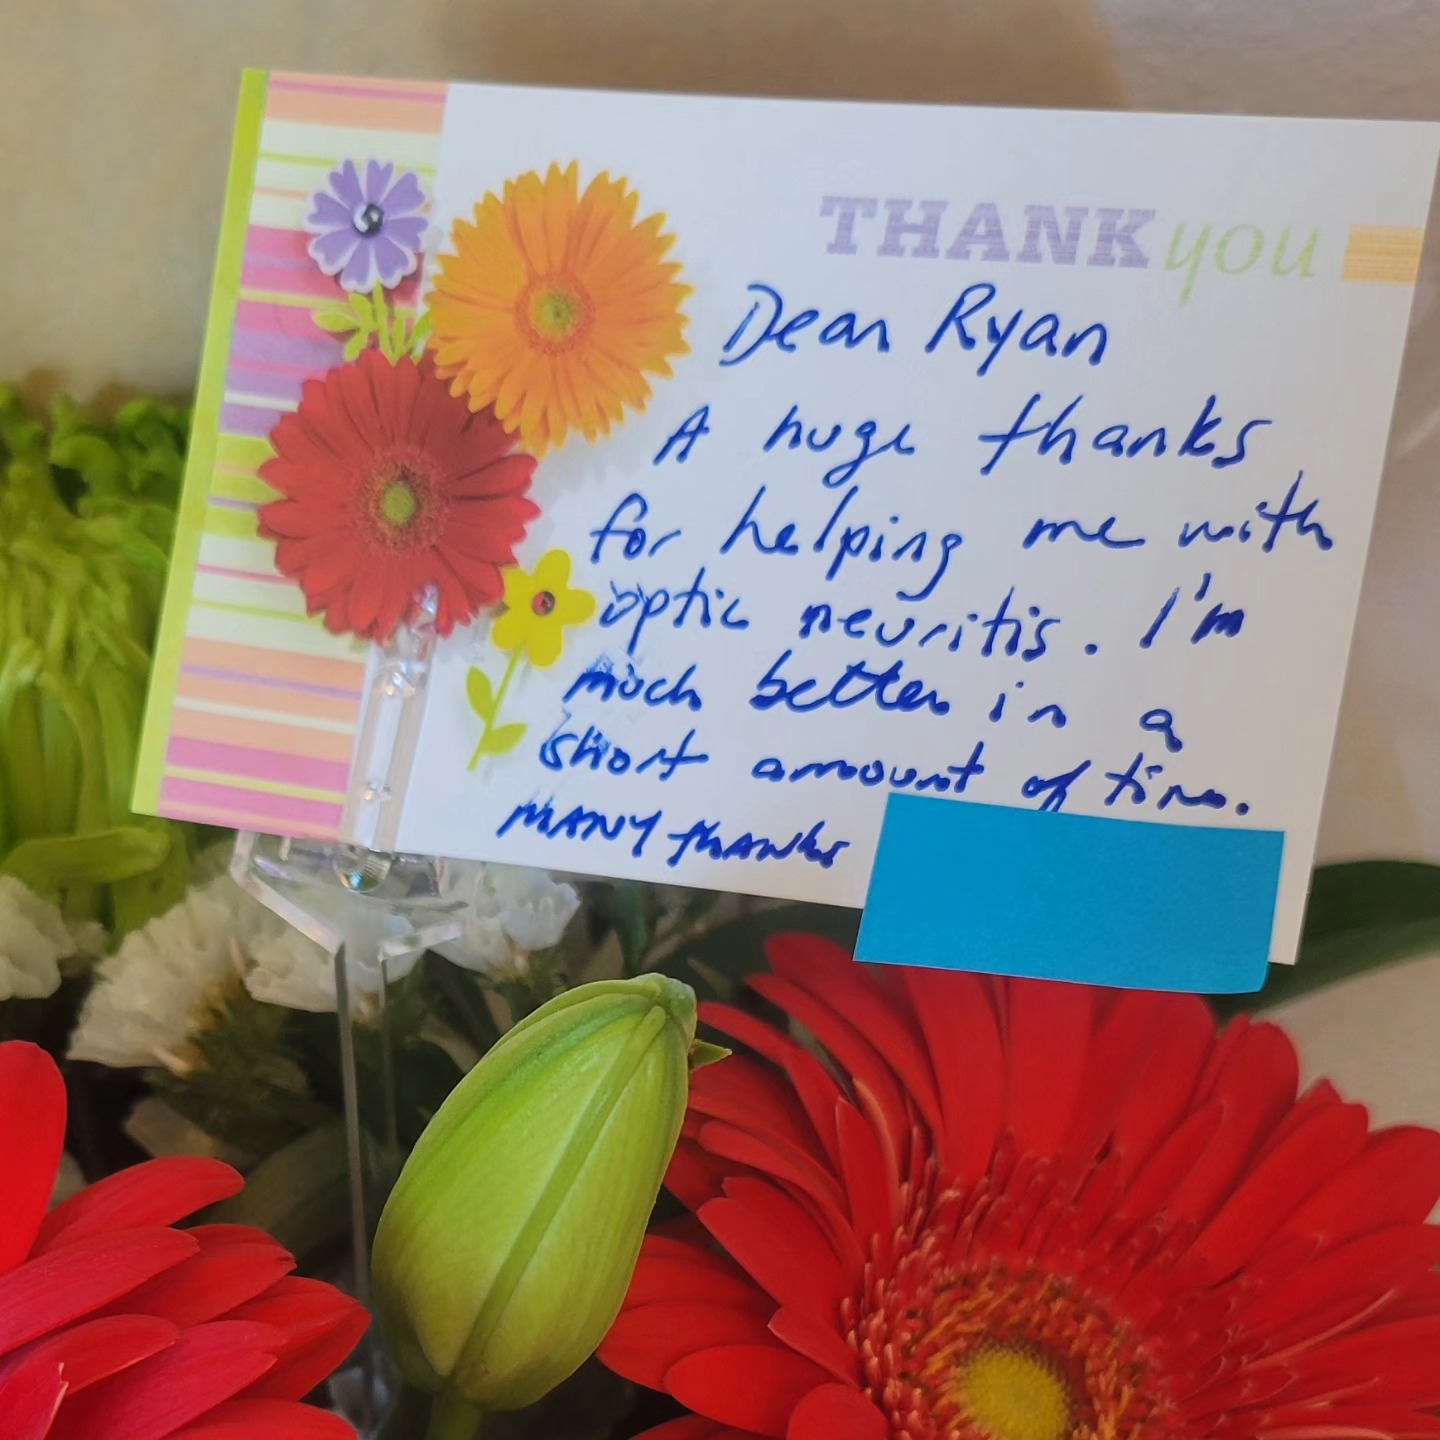 THANK you
Dear Ryan
A huge thanks
for helping me with
optic neuritis. I'm
much better in a
short amount of time.
MANY thanks